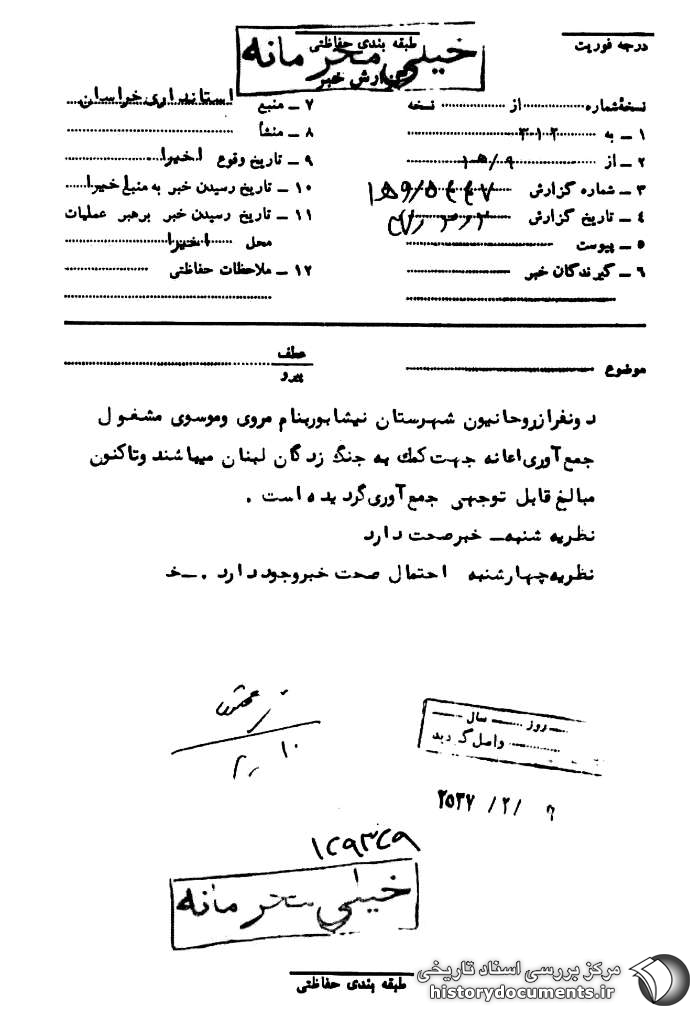 درجه فوریت
طبقه بندی حفاظتی
خیلی محرمانه
گزارش خبر
نسخهٔ شماره ............ از ............ نسخه
۱ – به ۳۱۲
۲ – از ۹/ه۱
۳ – شماره گزارش
۴ – تاریخ گزارش
۵ – پیوست
۶ – گیرندگان خبر
۷ – منبع استانداری خراسان
۸ – منشأ
۹ – تاریخ وقوع اخیرا
۱۰ – تاریخ رسیدن خبر به منبع اخیرا
۱۱ – تاریخ رسیدن خبر برهبر عملیات
محل اخیرا
۱۲ – ملاحظات حفاظتی
موضوع
عطف
پیرو
دونفر از روحانیون شهرستان نیشابور بنام مروی وموسوی مشغول
جمع آوری اعانه جهت کمک به جنگ زدگان لبنان میباشند وتاکنون
مبالغ قابل توجهی جمع آوری گردیده است .
نظریه شنبه – خبر صحت دارد
نظریه چهارشنبه احتمال صحت خبر وجود دارد . – خ
۱۰
روز ...... سال ......
واصل گردید
۲۵۳۷ /۲/ ۶
۱۲۹۳۲۹
خیلی محرمانه
طبقه بندی حفاظتی
مرکز بررسی اسناد تاریخی
historydocuments.ir